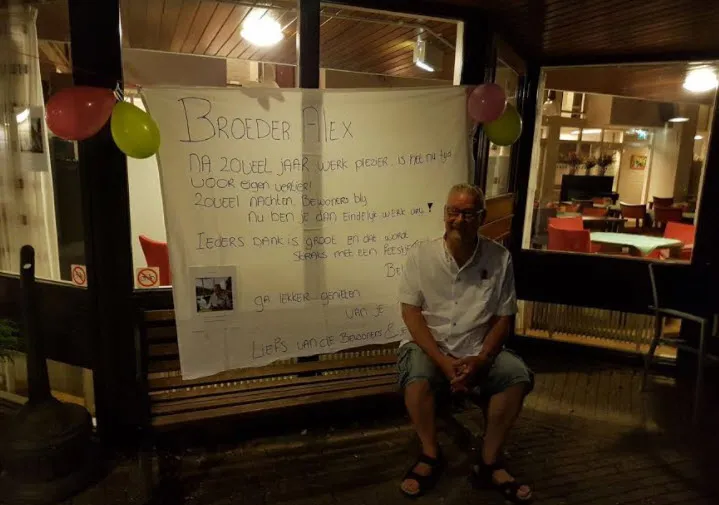 BROEDER ALEX
NA ZOVEEL JAAR WERK PLEZIER, IS HET NU TIJD
VOOR EIGEN VERTIER!
ZOVEEL NACHTEN, BEWONERS BLIJ
NU BEN JE DAN EINDELIJK WERK VRIJ!
IEDERS DANK IS GROOT EN DAT WORDT
STRAKS MET EEN
GA LEKKER GENIETEN
VAN JE
LIEFS VAN DE BEWONERS &